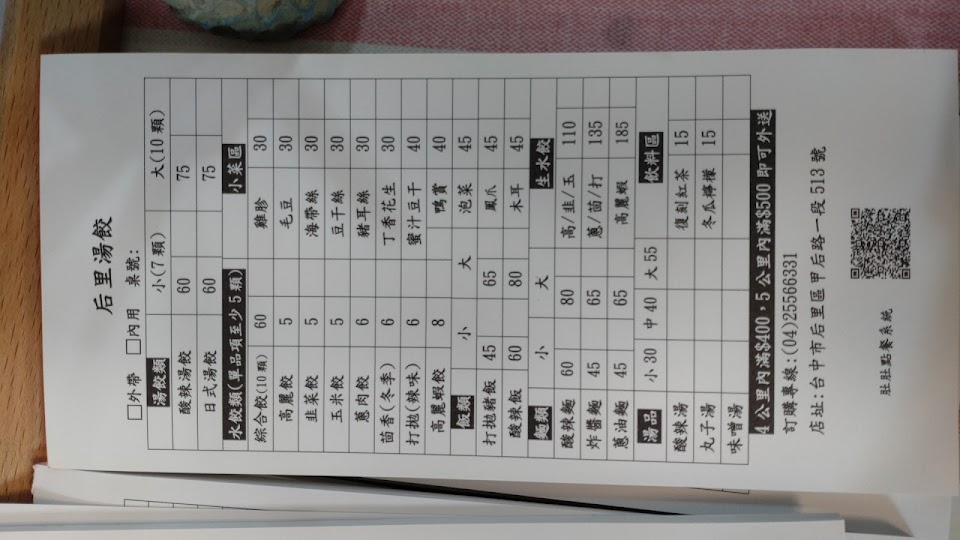 后里湯餃
□外帶 □內用 桌號:
湯餃類 小(7顆) 大(10顆)
酸辣湯餃 60 75
日式湯餃 60 75
水餃類(單品項至少5顆) 小菜區
綜合餃(10顆) 60 雞胗 30
高麗餃 5 毛豆 30
韭菜餃 5 海帶絲 30
玉米餃 5 豆干絲 30
蔥肉餃 6 豬耳絲 30
茴香(冬季) 6 丁香花生 30
打拋(辣味) 6 蜜汁豆干 40
高麗蝦餃 8 鴨賞 40
飯類 小 大 泡菜 45
打拋豬飯 45 65 鳳爪 45
酸辣飯 60 80 木耳 45
麵類 小 大 生水餃
酸辣麵 60 80 高/韭/玉 110
炸醬麵 45 65 蔥/茴/打 135
蔥油麵 45 65 高麗蝦 185
湯品 小30 中40 大55 飲料區
酸辣湯 復刻紅茶 15
丸子湯 冬瓜檸檬 15
味噌湯
4公里內滿$400,5公里內滿$500即可外送
訂購專線:(04)25566331
店址:台中市后里區甲后路一段513號
肚肚點餐系統